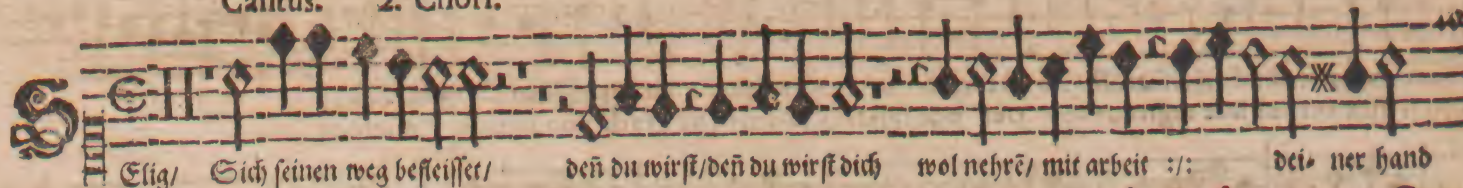 Cantus. 2. Chori.
SElig/ Sich seinen weg befleisset/ deñ du wirst/deñ du wirst dich wol nehrẽ/ mit arbeit :/: dei- ner hand